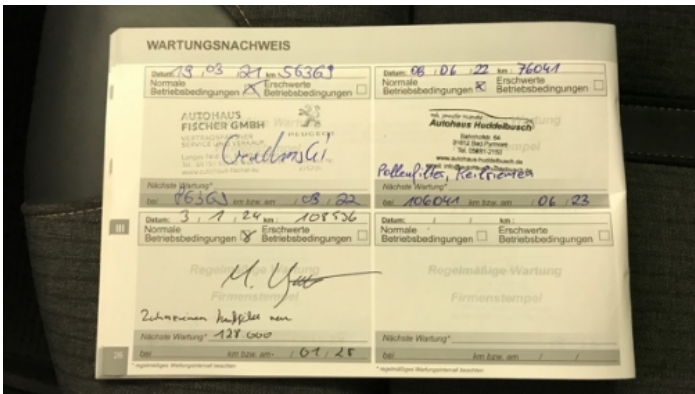 WARTUNGSNACHWEIS
Datum: 19 / 03 / 21 km 56369
Normale Betriebsbedingungen
Erschwerte Betriebsbedingungen
AUTOHAUS
FISCHER GMBH
PEUGEOT
Nächste Wartung*
bei 86369 km bzw. am / 03 / 22
Datum: 08 / 06 / 22 km: 76041
Normale Betriebsbedingungen
Erschwerte Betriebsbedingungen
Autohaus Huddelbusch
Bahnhofstr. 64
Bad Pyrmont
Pollenfilter, Keilriemen
Nächste Wartung*
bei 106041 km bzw. am / 06 / 23
III
Datum: 3 / 1 / 24 km: 108536
Normale Betriebsbedingungen
Erschwerte Betriebsbedingungen
Regelmäßige Wartung
Firmenstempel
Zahnriemen neu
Nächste Wartung* 128.000
bei km bzw. am / 01 / 25
Datum: / / km:
Normale Betriebsbedingungen
Erschwerte Betriebsbedingungen
Regelmäßige Wartung
Firmenstempel
Nächste Wartung*
bei km bzw. am / /
26
* regelmäßiges Wartungsintervall beachten
* regelmäßiges Wartungsintervall beachten